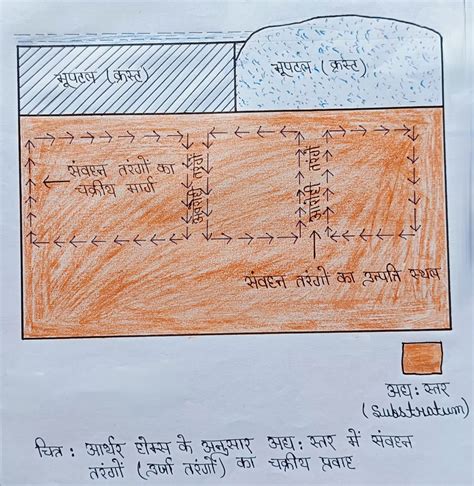 भूपटल (क्रस्ट)
भूपटल (क्रस्ट)
संवहन तरंगों का
चक्रीय मार्ग
अवरोही तरंगें
आरोही तरंगें
संवहन तरंगों का उत्पत्ति स्थल
अधः स्तर
(Substratum)
चित्र : आर्थर होम्स के अनुसार अधः स्तर में संवहन
तरंगों (उर्जा तरंगों) का चक्रीय प्रवाह